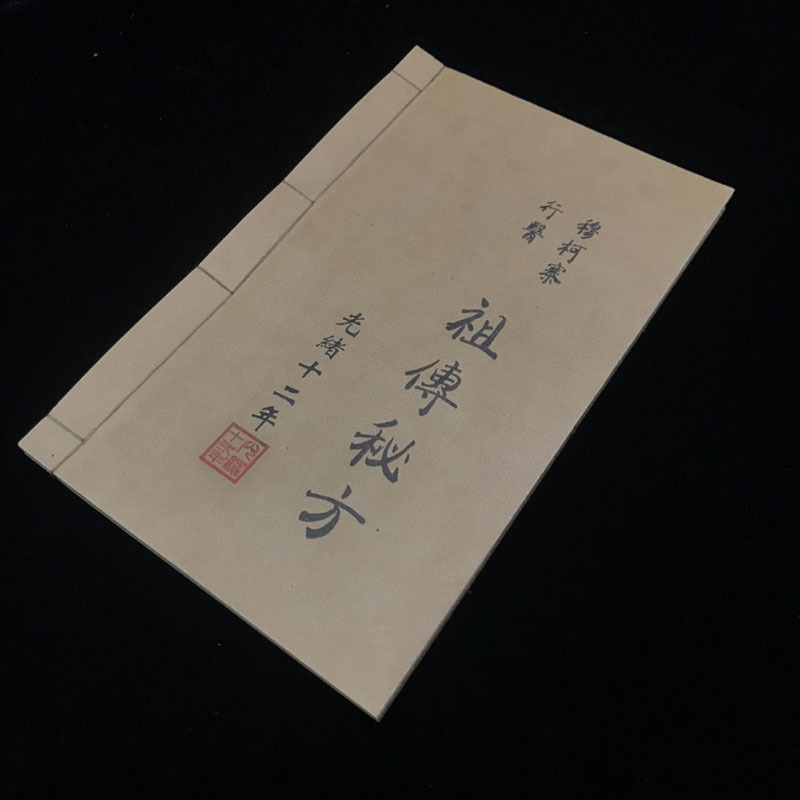 穆柯寨
行醫
祖傳秘方
光緒十二年